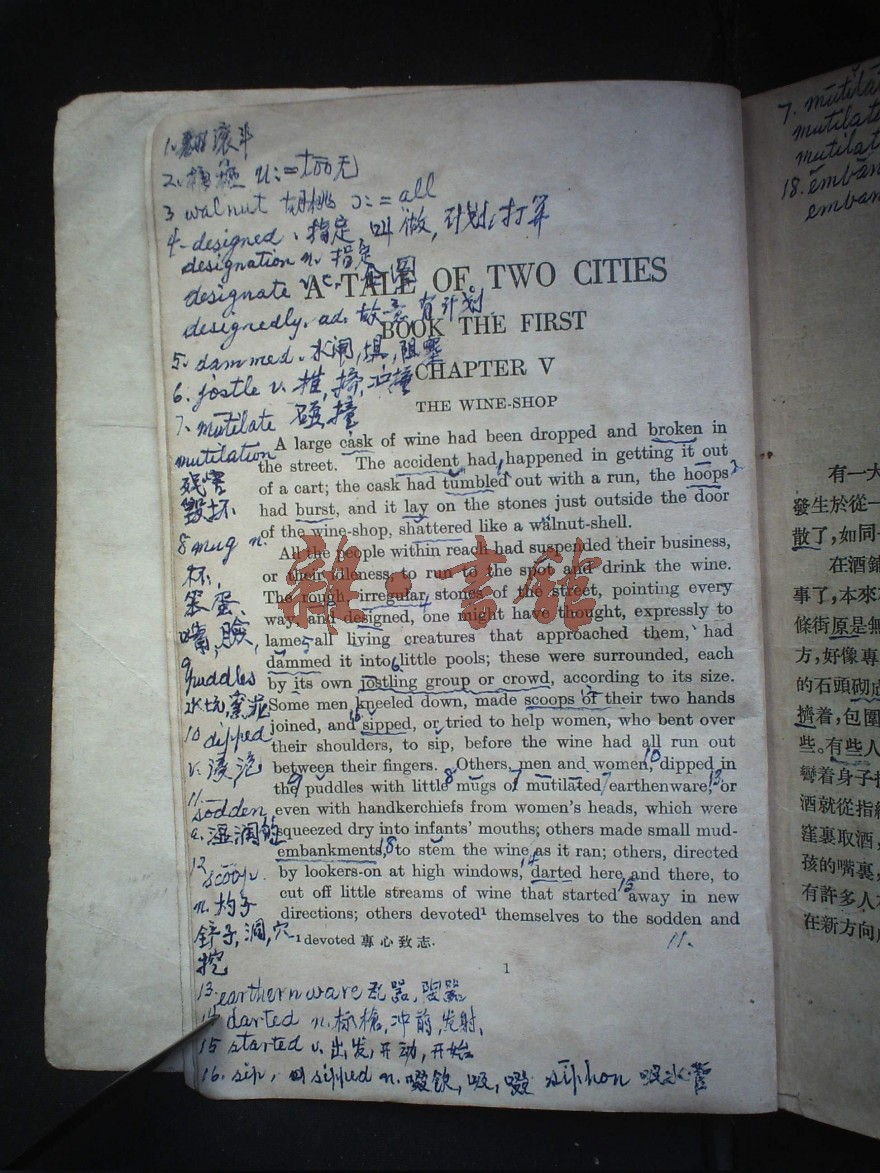 1. 翻滚斗
2. 桶箍 u: = too 无
3 walnut 胡桃 ɔ: = all
4. designed、指定, 叫做, 计划, 打算
designation n. 指定
designate v.
designedly. ad. 故意 有计划
5. dammed、水闸, 堤, 阻塞
6. jostle v. 推, 挤, 冲撞
碰撞
7. mutilate
mutilation
残害
毁坏
8 mug n.
杯,
笨蛋、
嘴, 臉,
9 puddles
水坑, 窯泥
10 dipped
v. 浸, 泡
11. sodden
a. 湿润的
12 scoop
n. 杓子
铲子, 洞, 穴
挖
A TALE OF TWO CITIES
BOOK THE FIRST
CHAPTER V
THE WINE-SHOP
A large cask of wine had been dropped and broken in
the street. The accident had happened in getting it out
of a cart; the cask had tumbled out with a run, the hoops
had burst, and it lay on the stones just outside the door
of the wine-shop, shattered like a walnut-shell.
All the people within reach had suspended their business,
or their idleness, to run to the spot and drink the wine.
The rough, irregular stones of the street, pointing every
way, and designed, one might have thought, expressly to
lame all living creatures that approached them, had
dammed it into little pools; these were surrounded, each
by its own jostling group or crowd, according to its size.
Some men kneeled down, made scoops of their two hands
joined, and sipped, or tried to help women, who bent over
their shoulders, to sip, before the wine had all run out
between their fingers. Others, men and women, dipped in
the puddles with little mugs of mutilated earthenware, or
even with handkerchiefs from women's heads, which were
squeezed dry into infants' mouths; others made small mud-
embankments, to stem the wine as it ran; others, directed
by lookers-on at high windows, darted here and there, to
cut off little streams of wine that started away in new
directions; others devoted¹ themselves to the sodden and
11.
¹ devoted 專心致志.
1
13. earthernware 瓦器, 陶器
14 darted n. 标槍, 冲前, 发射、
15 started v. 出发, 开动, 开始
16. sip, sipped n. 啜飲, 吸, 啜 siphon 吸水管
雜·書館
7. mutila
mutilat
mutilat
18. emban
emban
有一大
發生於從一
散了,如同一
在酒鋪
事了,本來
條街原是無
方,好像專
的石頭砌成
擠着,包圍
些。有些人
彎着身子
酒就從指
窪裏取酒,
孩的嘴裏,
有許多人
在新方向